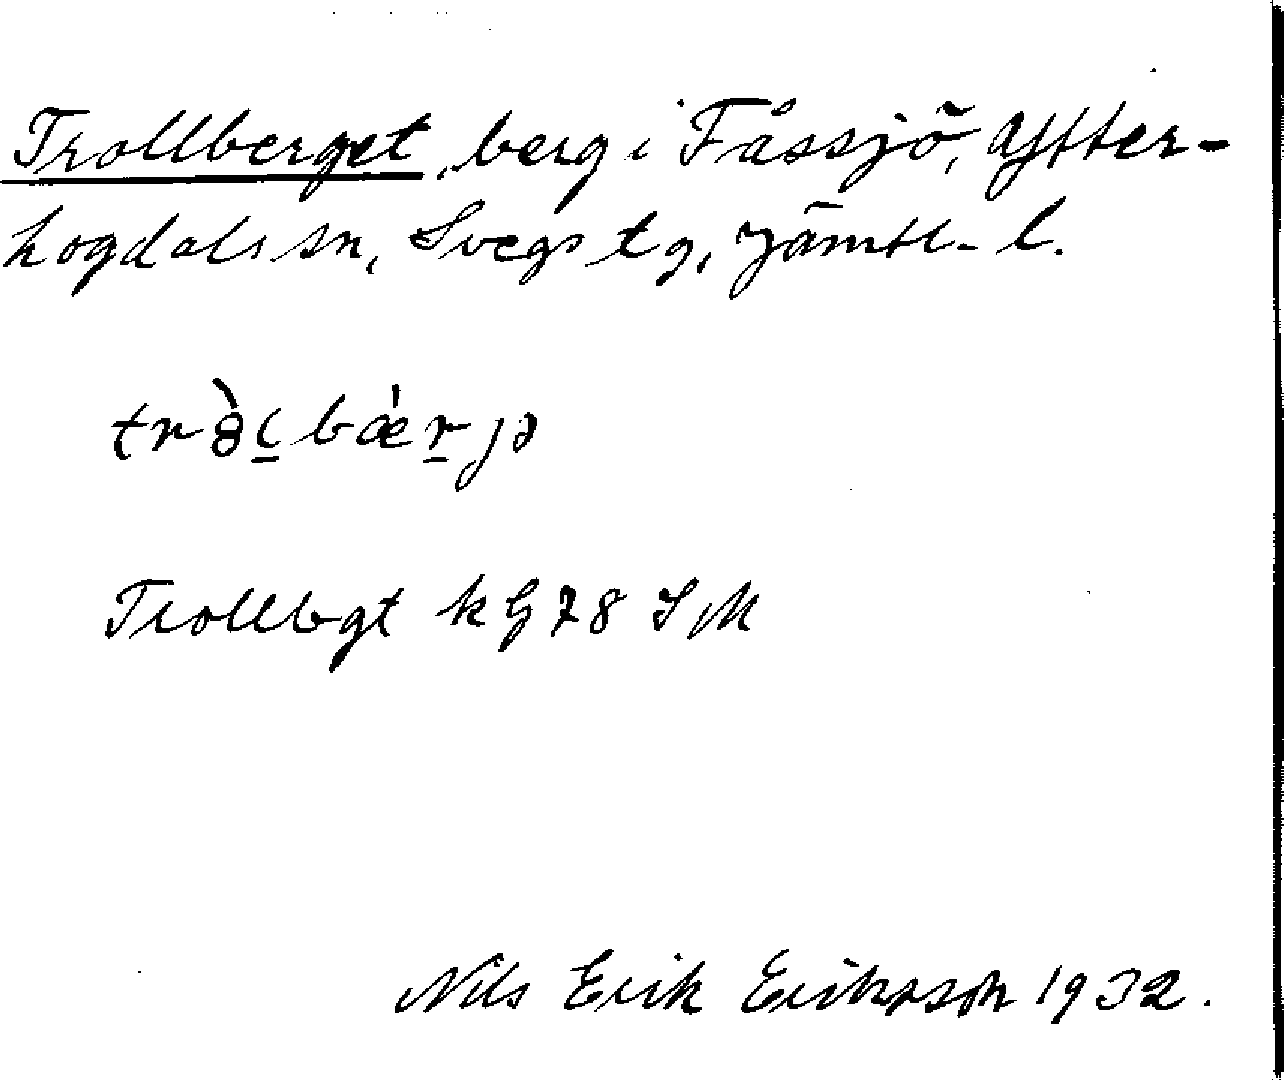 Trollberget, berg i Fåssjö, Ytter-
hogdals sn, Svegs tg, Jämtl. l.
trò̀ḻbǽṟjə
Trollbgt kG 78 SM
Nils Erik Eriksson 1932.